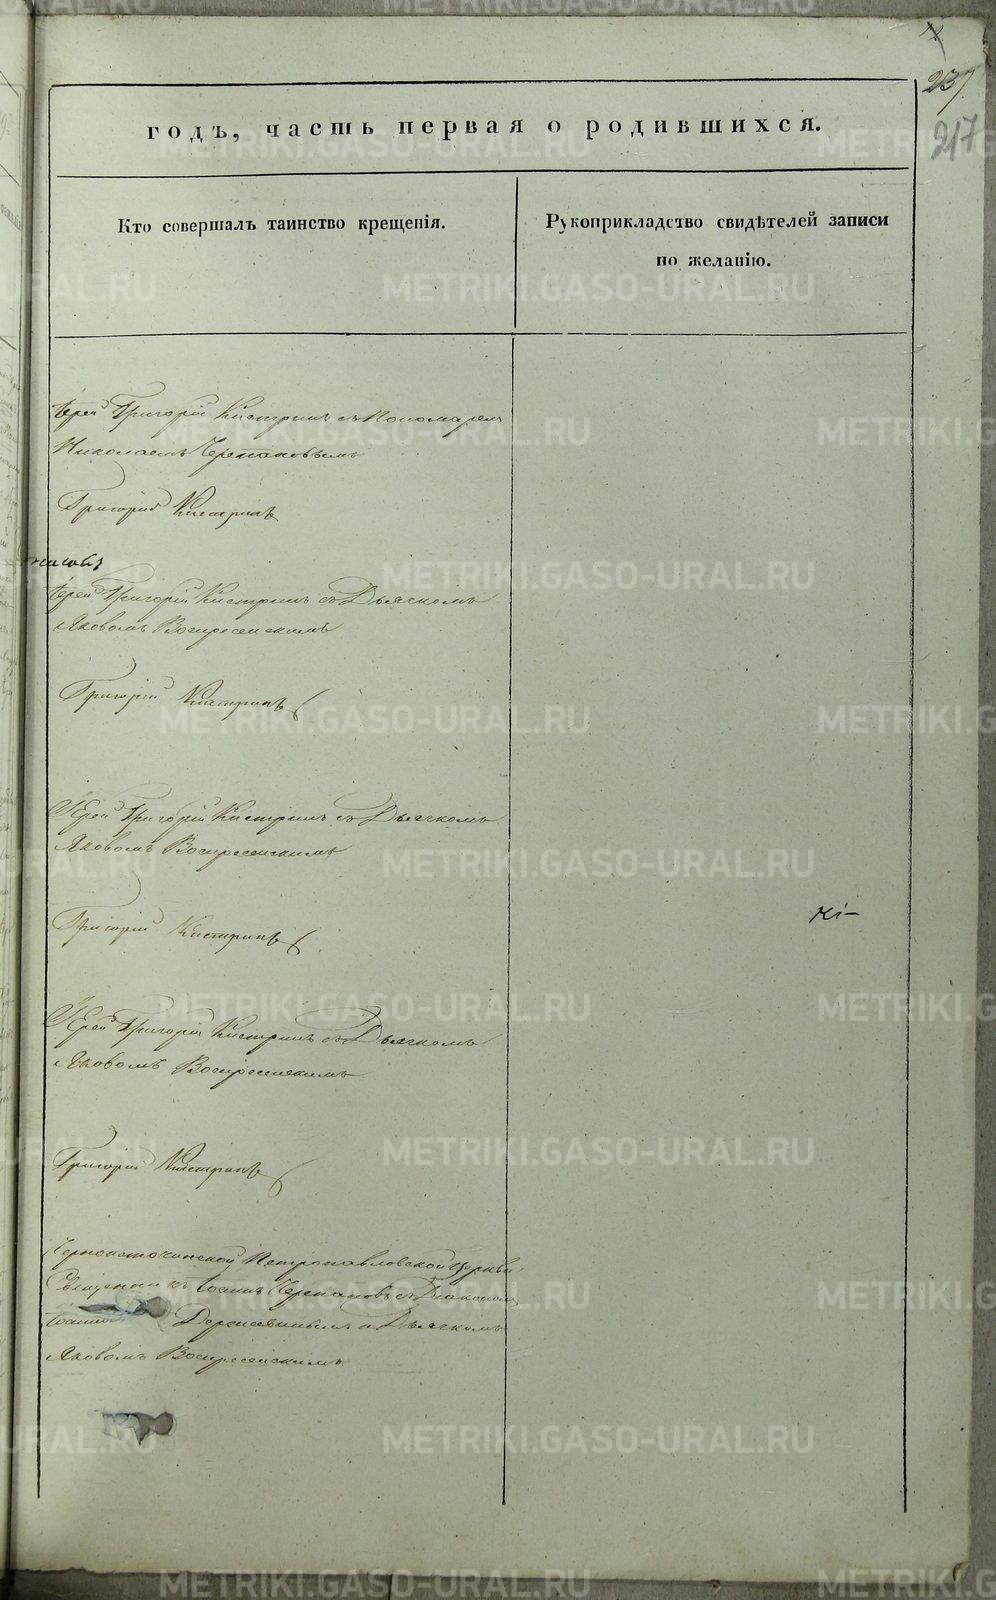 237
217
годъ, часть первая о родившихся.
Кто совершалъ таинство крещенія.
Рукоприкладство свидѣтелей записи
по желанію.
Іерей Григорій Кистринъ съ Пономаремъ
Николаемъ Черепановымъ
Григорій Кистринъ
Іерей Григорій Кистринъ съ Дьячкомъ
Яковомъ Воскресенскимъ
Григорій Кистринъ
Іерей Григорій Кистринъ съ Дьячкомъ
Яковомъ Воскресенскимъ
Григорій Кистринъ
Іерей Григорій Кистринъ съ Дьячкомъ
Яковомъ Воскресенскимъ
Григорій Кистринъ
Черноисточинской Петропавловской церкви
Священникъ Іоаннъ Черепановъ съ Діакономъ
Державинымъ и Дьячкомъ
Яковомъ Воскресенскимъ
METRIKI.GASO-URAL.RU